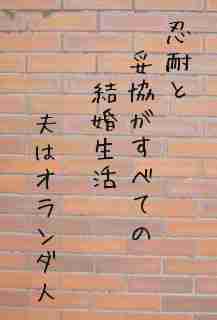 忍耐と
妥協がすべての
結婚生活
夫はオランダ人